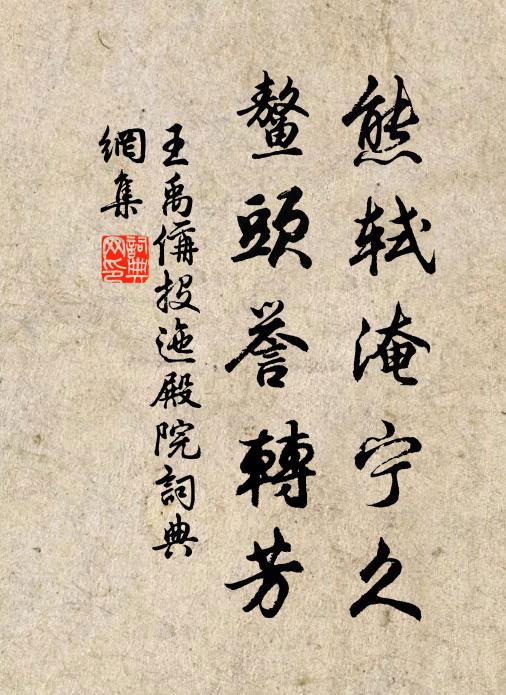 熊軾淹宁久
鰲頭誉轉芳
王禹偁投迤殿院詞典
網集
詞典网印